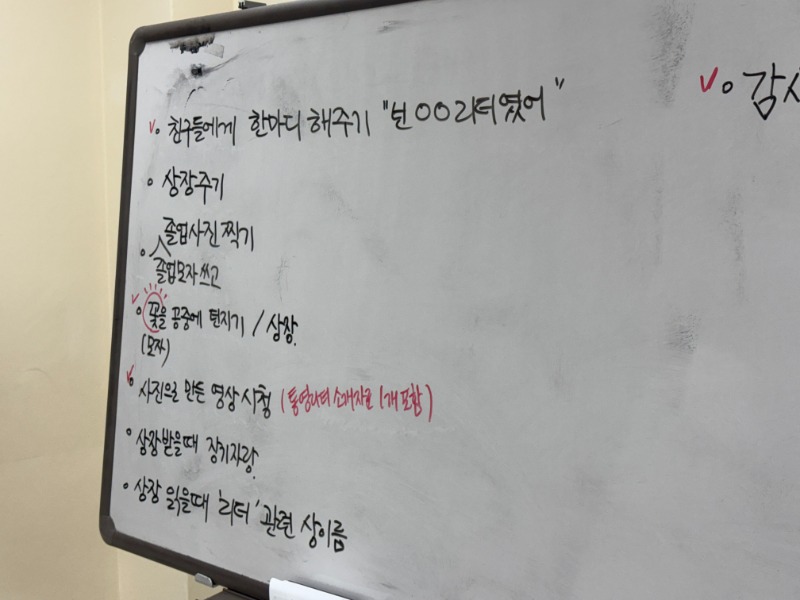 친구들에게 한마디 해주기 "넌 OO리더였어"
상장주기
졸업사진 찍기
졸업모자 쓰고
꽃을 공중에 던지기 / 상장.
(모자)
사진으로 만든 영상 시청 (통영리더 소개자료 1개 포함)
상장받을때 장기자랑.
상장 읽을때 '리더' 관련 상이름
감사